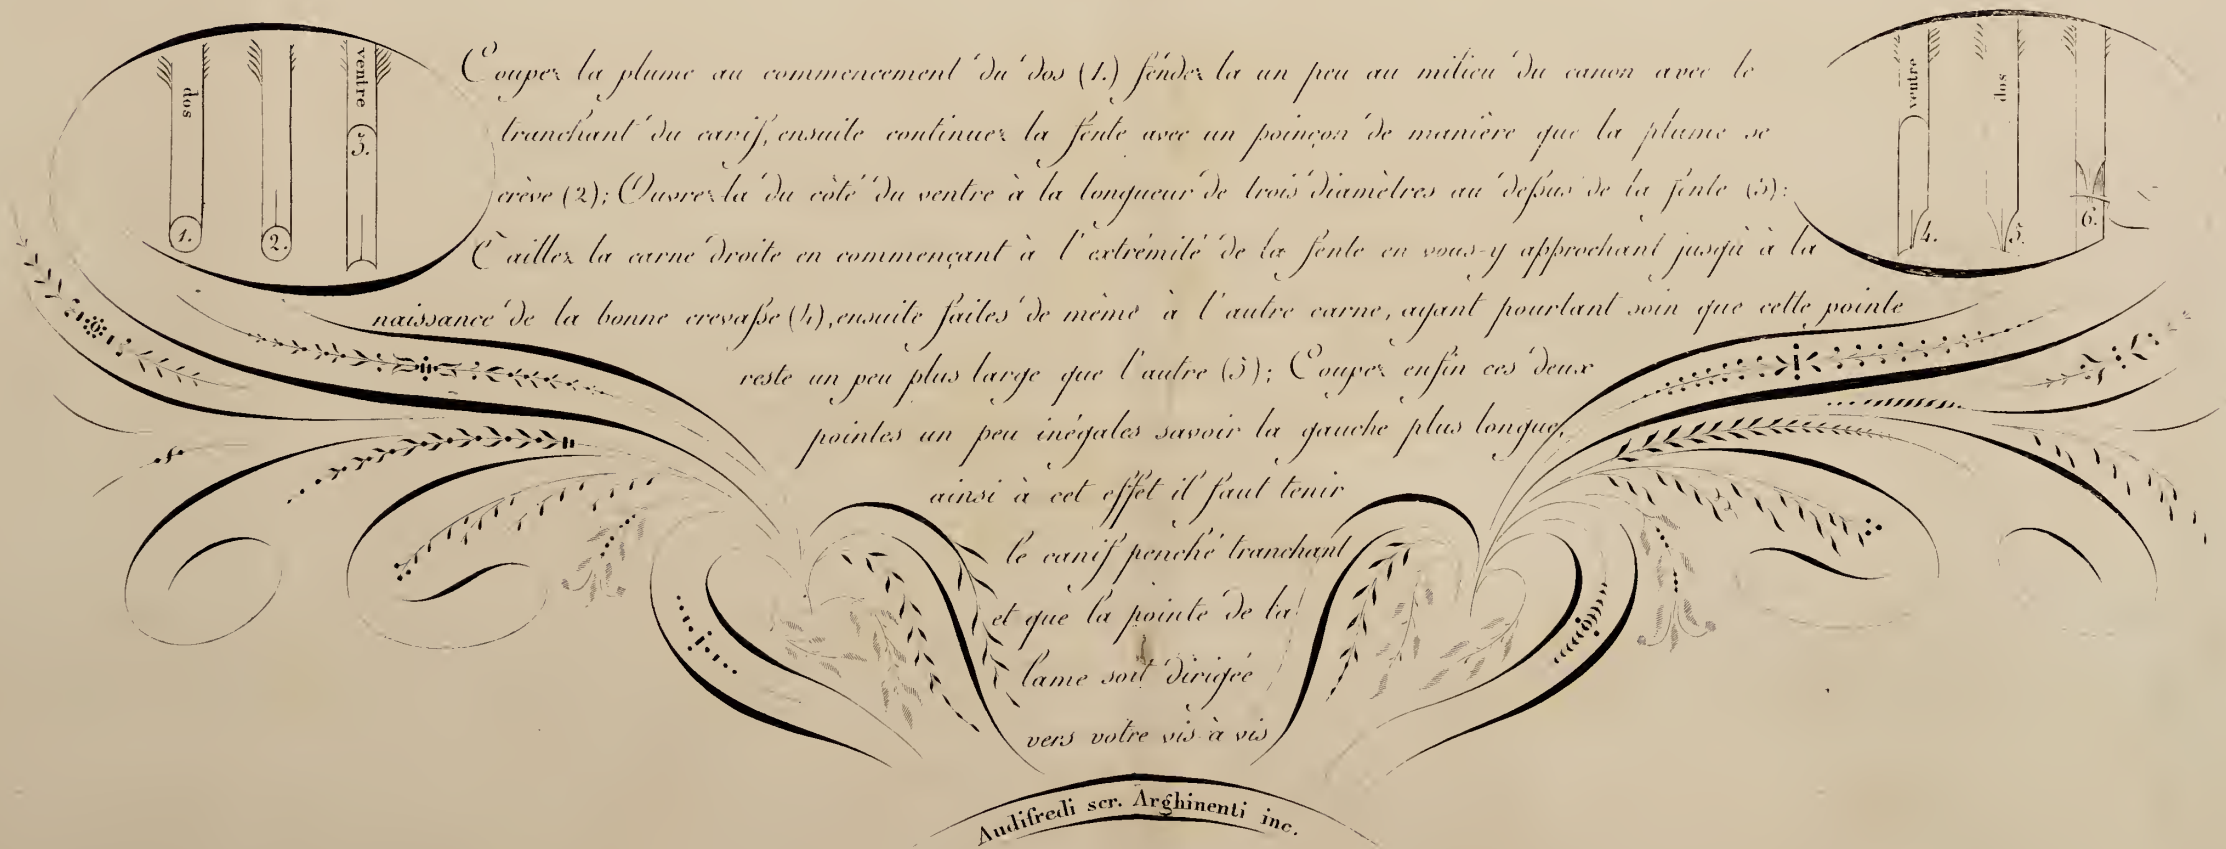 dos
1.
2.
ventre
3.
Coupez la plume au commencement du dos (1.) fendez la un peu au milieu du canon avec le
tranchant du canif, ensuite continuez la fente avec un poinçon de manière que la plume se
crève (2); Ouvrez la du côté du ventre à la longueur de trois diamètres au deſsus de la fente (3):
Taillez la carne droite en commençant à l'extrémité de la fente en vous-y approchant jusqu'à la
naissance de la bonne crevaſse (4), ensuite faites de même à l'autre carne, ayant pourtant soin que cette pointe
reste un peu plus large que l'autre (5); Coupez enfin ces deux
pointes un peu inégales savoir la gauche plus longue,
ainsi à cet effet il faut tenir
le canif penché tranchant
et que la pointe de la
lame soit dirigée
vers votre vis à vis
ventre
4.
dos
5.
6.
Audifredi scr. Arghinenti inc.